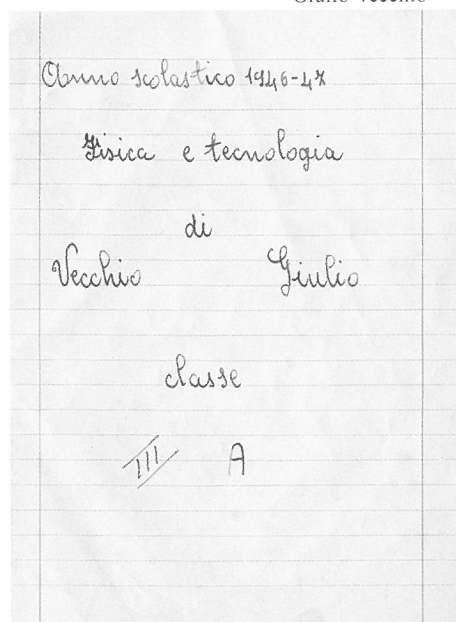 Giulio Vecchio
Anno scolastico 1946-47
Fisica e tecnologia
di
Vecchio Giulio
classe
III A